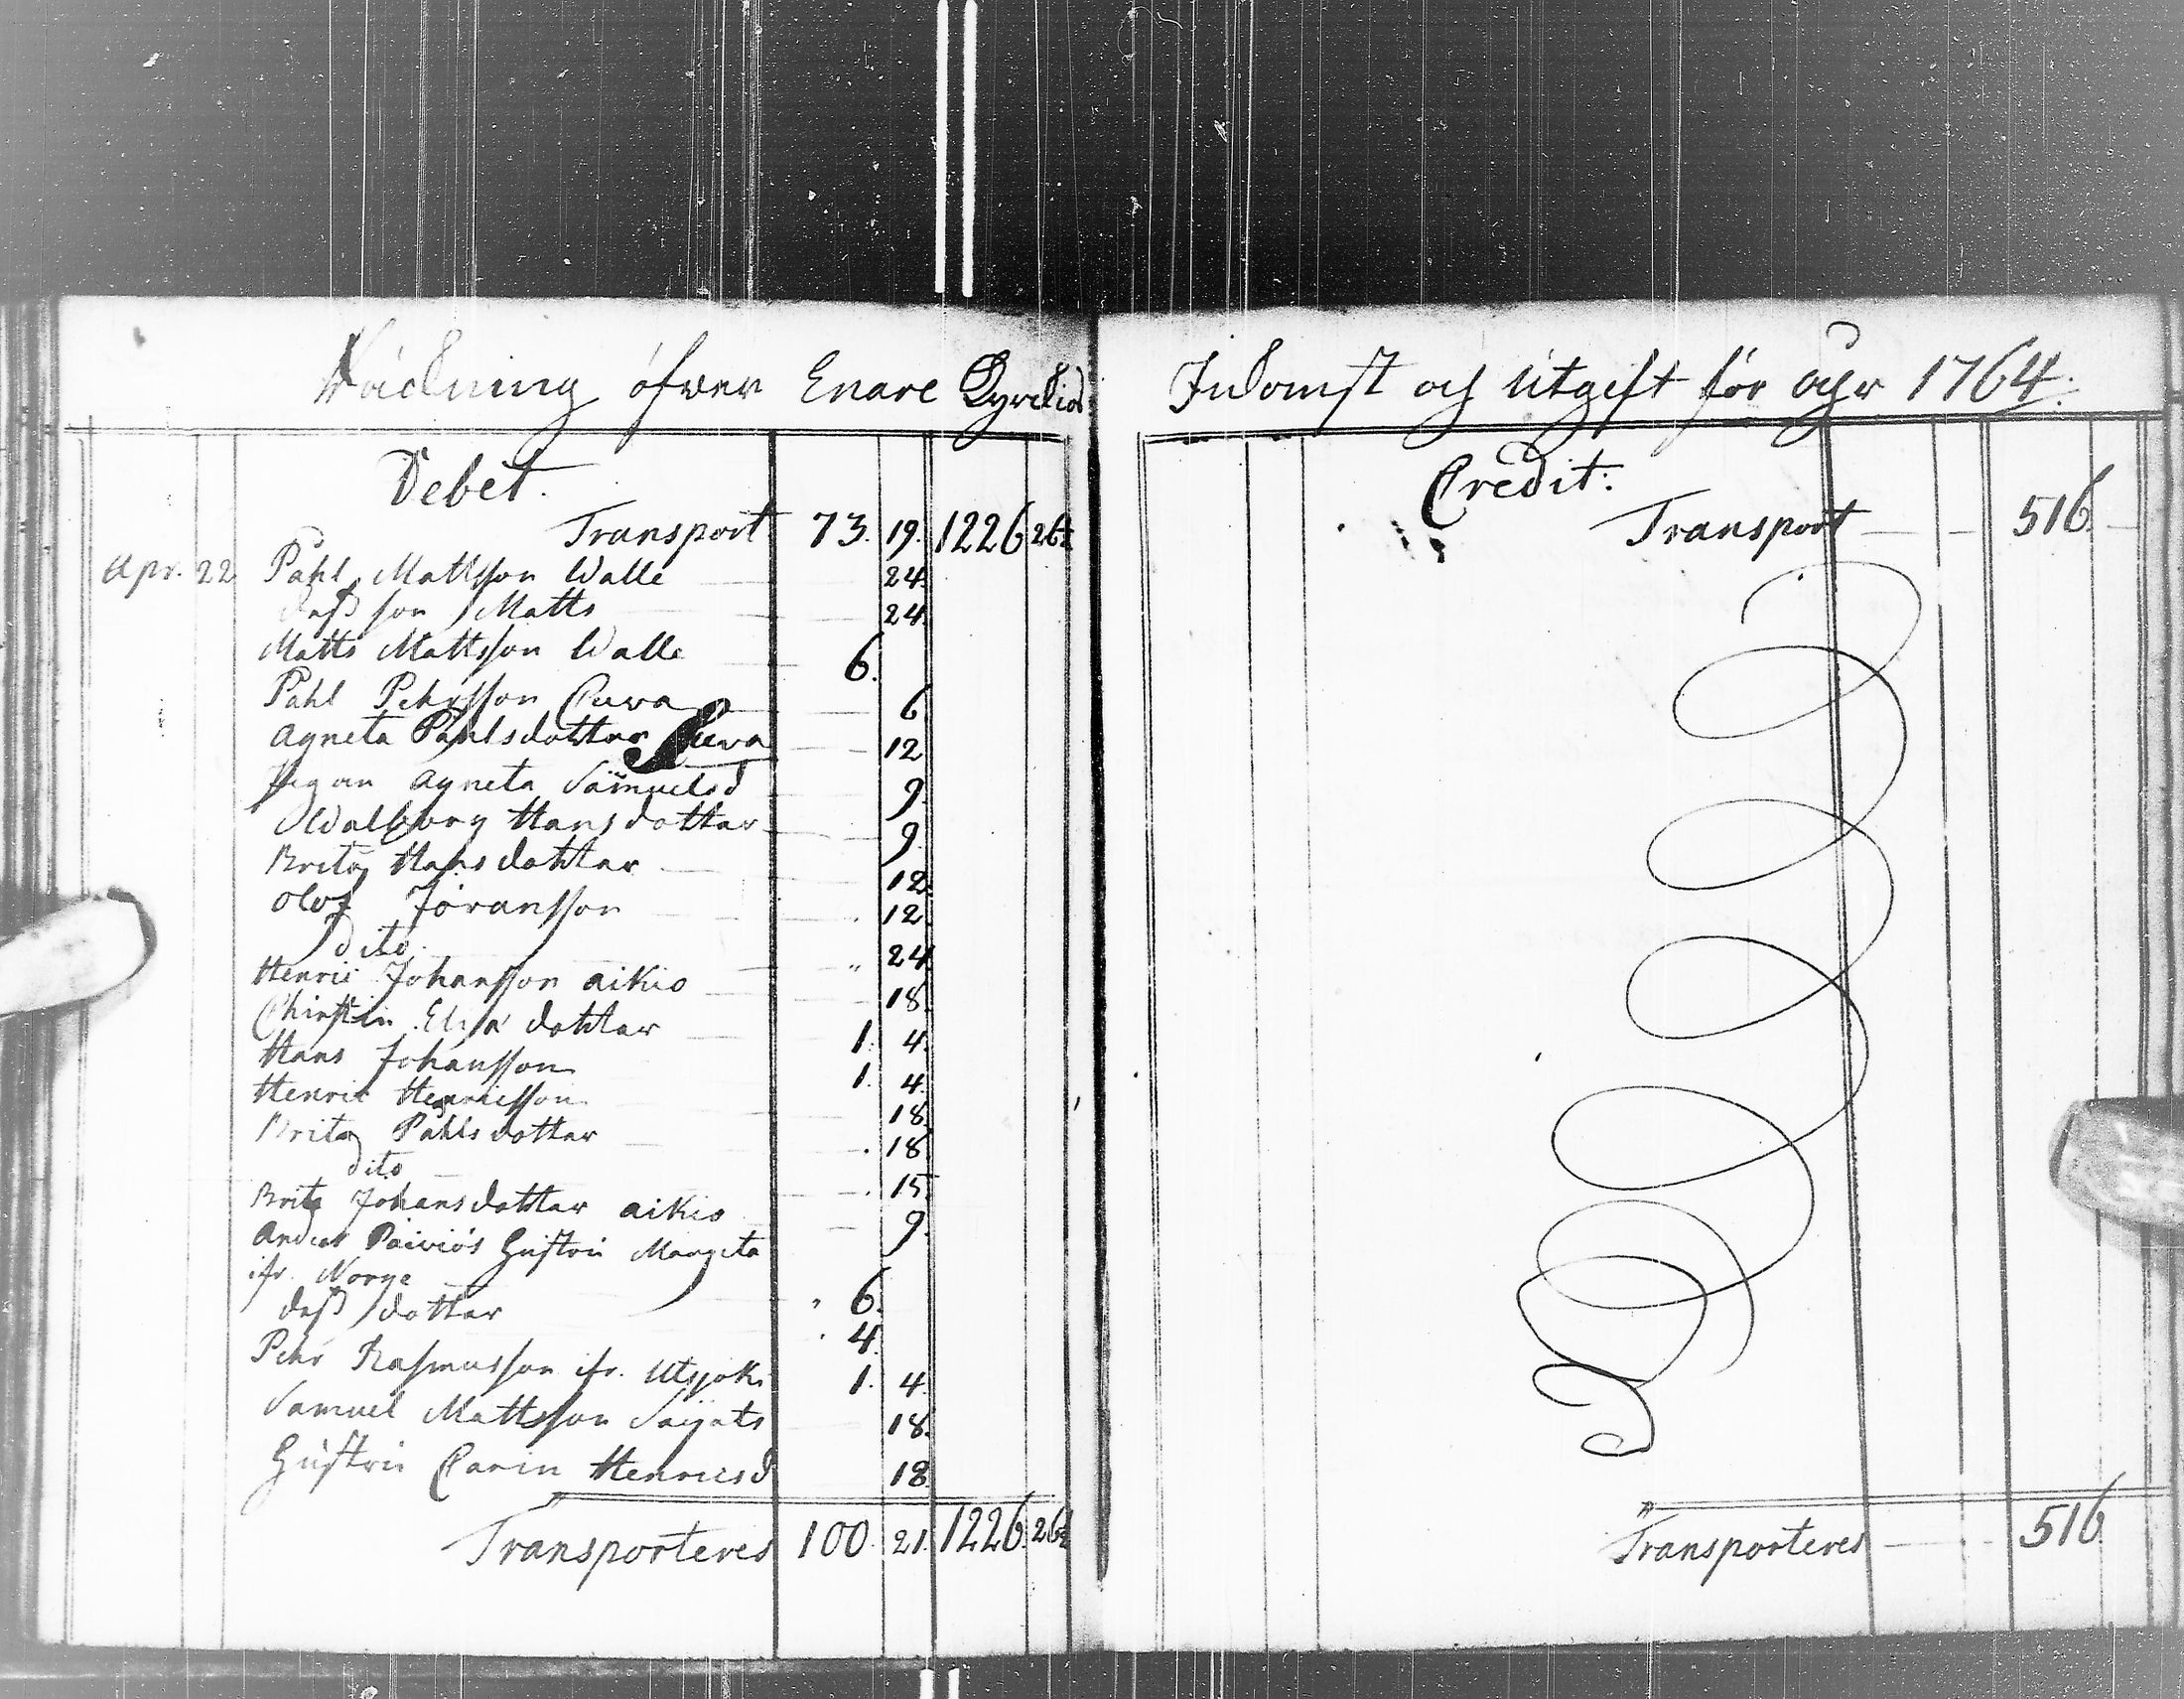 Räckning öfwer Enare Kyrckios
Debet.
Transport 73. 19. 1226 26½
Apr. 22 Påhl Mattsson Walle 24.
dess son Matts 24.
Matts Mattsson Walle 6.
Påhl Pehrsson Cuwa 6
Agneta Påhlsdotter Cuwa 12
Pigan Agneta Samuelsd 9.
Walborg Hansdotter 9.
Brita Hansdotter 12.
Olof Jöransson 12
dito 24
Henric Johansson Aikio 18.
Chirstin Elsa dotter 1. 4.
Hans Johansson 1. 4.
Henric Henricsson 18.
Brita Påhlsdotter 18
dito 15.
Brita Johansdotter Aikio 9.
Anders Päiviös Hustru Margeta
ifr. Norge 6.
dess dotter 4.
Pehr Rasmusson ifr. Utsjoki 1. 4.
Samuel Mattsson Saijets 18.
Hustru Carin Henricsd 18
Transporteres 100. 21. 1226. 26½
Inkomst och Utgift för åhr 1764.
Credit.
Transport 516.
Transporteres 516.